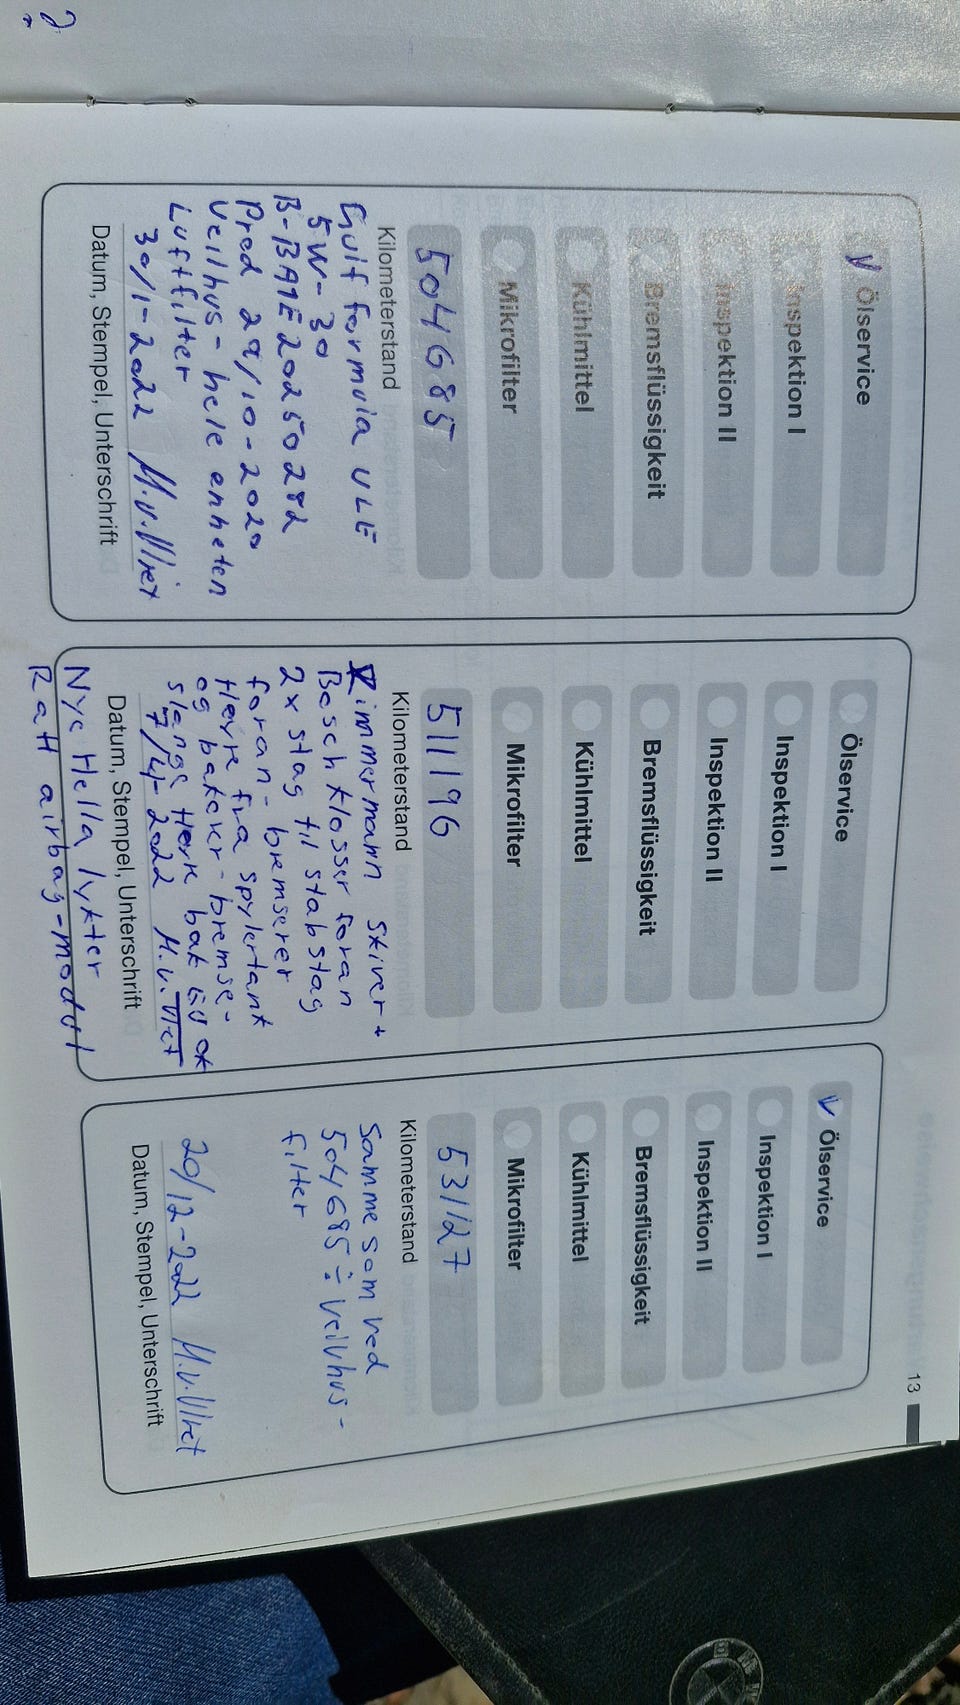 13
✓ Ölservice
Inspektion I
Inspektion II
Bremsflüssigkeit
Kühlmittel
Mikrofilter
504685
Kilometerstand
Gulf Formula ULE
5W-30
B-BA1E20250282
Prod 29/10-2020
Veilhus-hele enheten
Luftfilter
30/1-2022 M.v.Vliet
Datum, Stempel, Unterschrift
Ölservice
Inspektion I
Inspektion II
Bremsflüssigkeit
Kühlmittel
Mikrofilter
511196
Kilometerstand
Zimmermann skiver +
Bosch klosser foran
2x stag til stabstag
foran - bremserør
Høyre fra spylertank
og bakover - bremse-
slange Høyre bak
7/4-2022 M.v.Vliet
Datum, Stempel, Unterschrift
Nye Hella lykter
RaH airbag-modul
✓ Ölservice
Inspektion I
Inspektion II
Bremsflüssigkeit
Kühlmittel
Mikrofilter
531127
Kilometerstand
Samme som ved
504685 ÷ veivhus-
filter
20/12-2022 M.v.Vliet
Datum, Stempel, Unterschrift
BMW